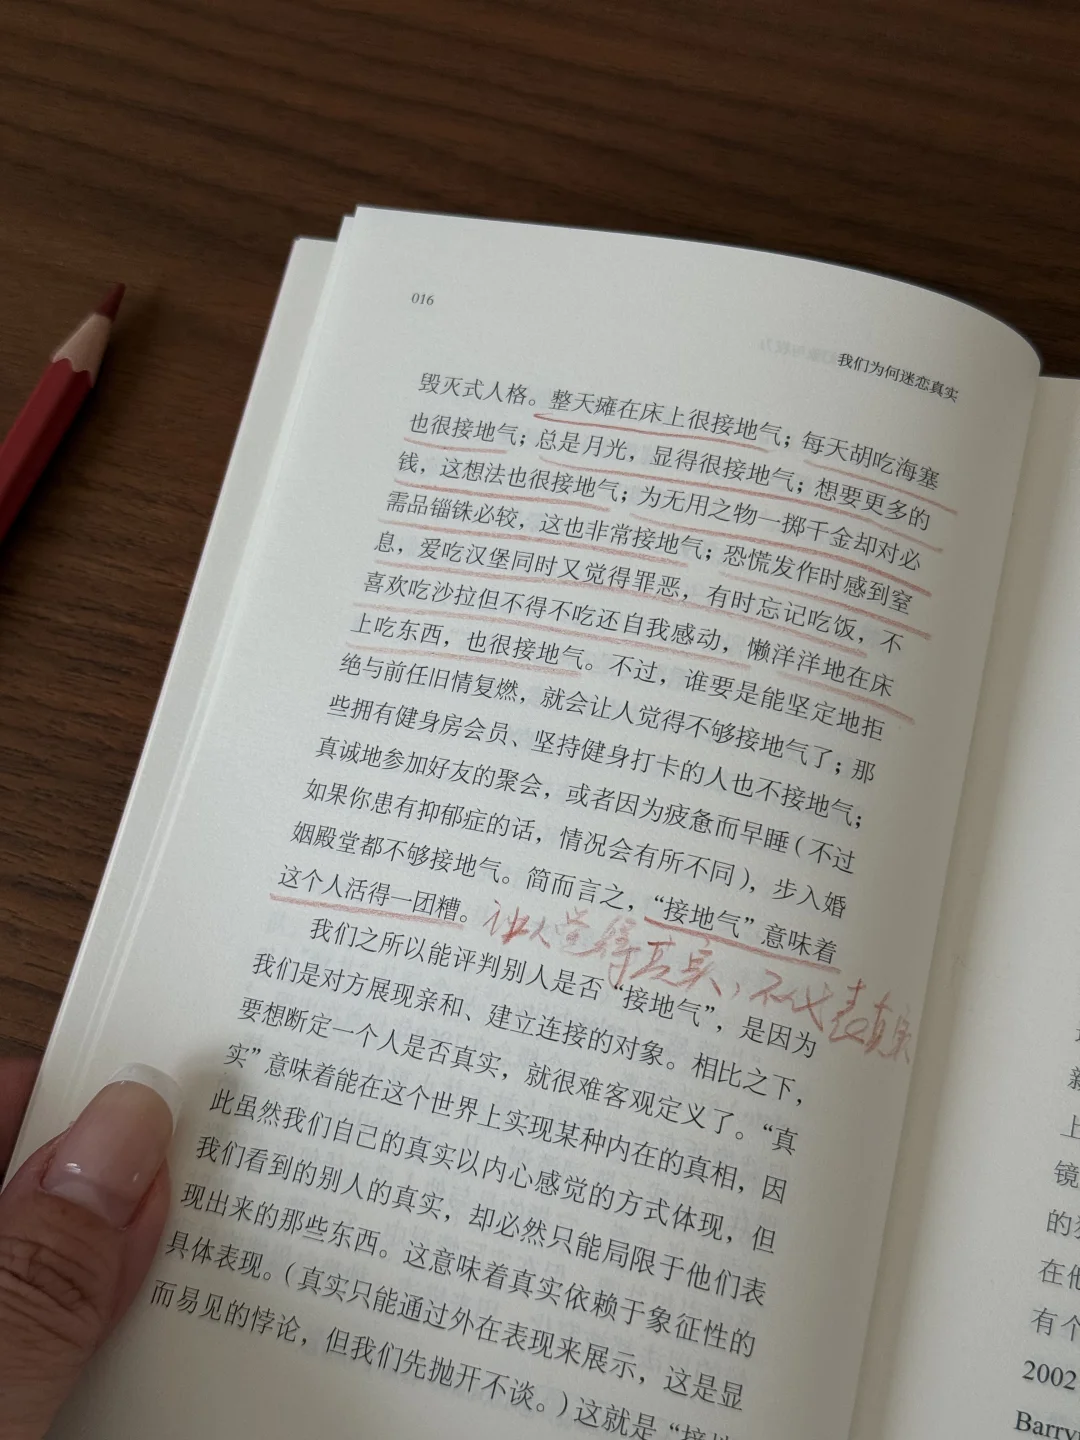 016
我们为何迷恋真实
毁灭式人格。整天瘫在床上很接地气；每天胡吃海塞
也很接地气；总是月光，显得很接地气；想要更多的
钱，这想法也很接地气；为无用之物一掷千金却对必
需品锱铢必较，这也非常接地气；恐慌发作时感到窒
息，爱吃汉堡同时又觉得罪恶，有时忘记吃饭，不
喜欢吃沙拉但不得不吃还自我感动，懒洋洋地在床
上吃东西，也很接地气。不过，谁要是能坚定地拒
绝与前任旧情复燃，就会让人觉得不够接地气了；那
些拥有健身房会员、坚持健身打卡的人也不接地气；
真诚地参加好友的聚会，或者因为疲惫而早睡（不过
如果你患有抑郁症的话，情况会有所不同），步入婚
姻殿堂都不够接地气。简而言之，“接地气”意味着
这个人活得一团糟。
让人觉得真实，不代表真实
我们之所以能评判别人是否“接地气”，是因为
我们是对方展现亲和、建立连接的对象。相比之下，
要想断定一个人是否真实，就很难客观定义了。“真
实”意味着能在这个世界上实现某种内在的真相，因
此虽然我们自己的真实以内心感觉的方式体现，但
我们看到的别人的真实，却必然只能局限于他们表
现出来的那些东西。这意味着真实依赖于象征性的
具体表现。（真实只能通过外在表现来展示，这是显
而易见的悖论，但我们先抛开不谈。）这就是“接地
新
上
镜
的
在他
有个
2002
Barry